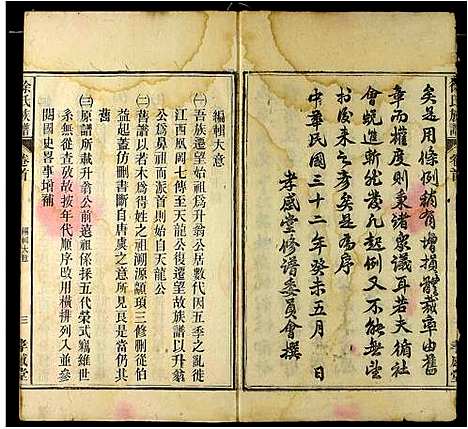 矣是用條例稍有增損體裁率由舊
章而權度則秉諸衆議耳若夫循社
會蛻進新紀莫凡起例又不能無望
於後來之彦矣是為序
中華民國三十二年癸未五月 日
孝感堂修譜委員會撰
徐氏族譜 卷首
編輯大意
㈠吾族遷望始祖爲升翁公居數代因五季之亂徙
江西凰岡七傳至天龍公復遷望故族譜以升翁
公爲鼻祖而派則自天龍公
㈡舊譜以老木爲例世祖溯源顓頊三修刪從伯
益起蓋仿刪書斷自唐虞之意所見良是當從
㈢原譜所載升翁公前遠祖係採五代榮式竊維世
系無從查攷故按年代順序改用橫排列入並于
閥國史畧事增補
編輯大意
三 孝感堂